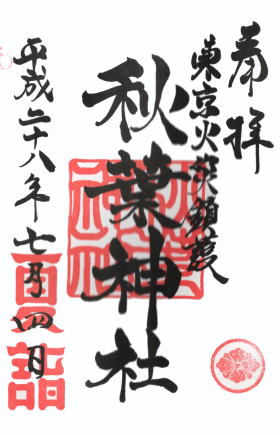 奉拝
東京火禁鎮護
秋葉神社
平成二十八年七月四日
百度詣